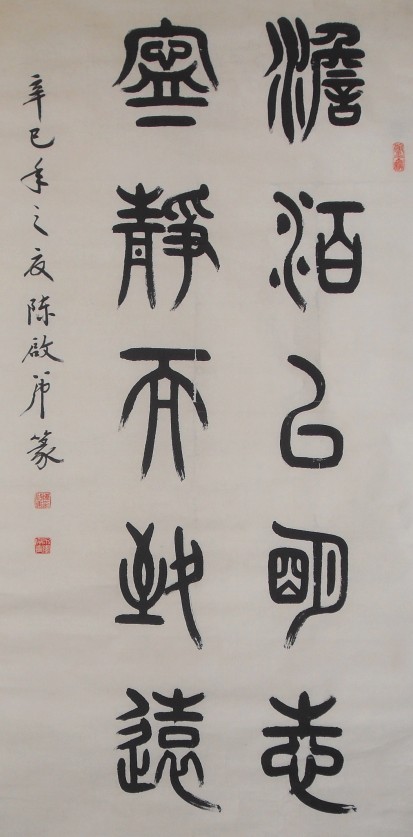 澹泊以明志
寧靜而致遠
辛巳年之夏陈啟篆